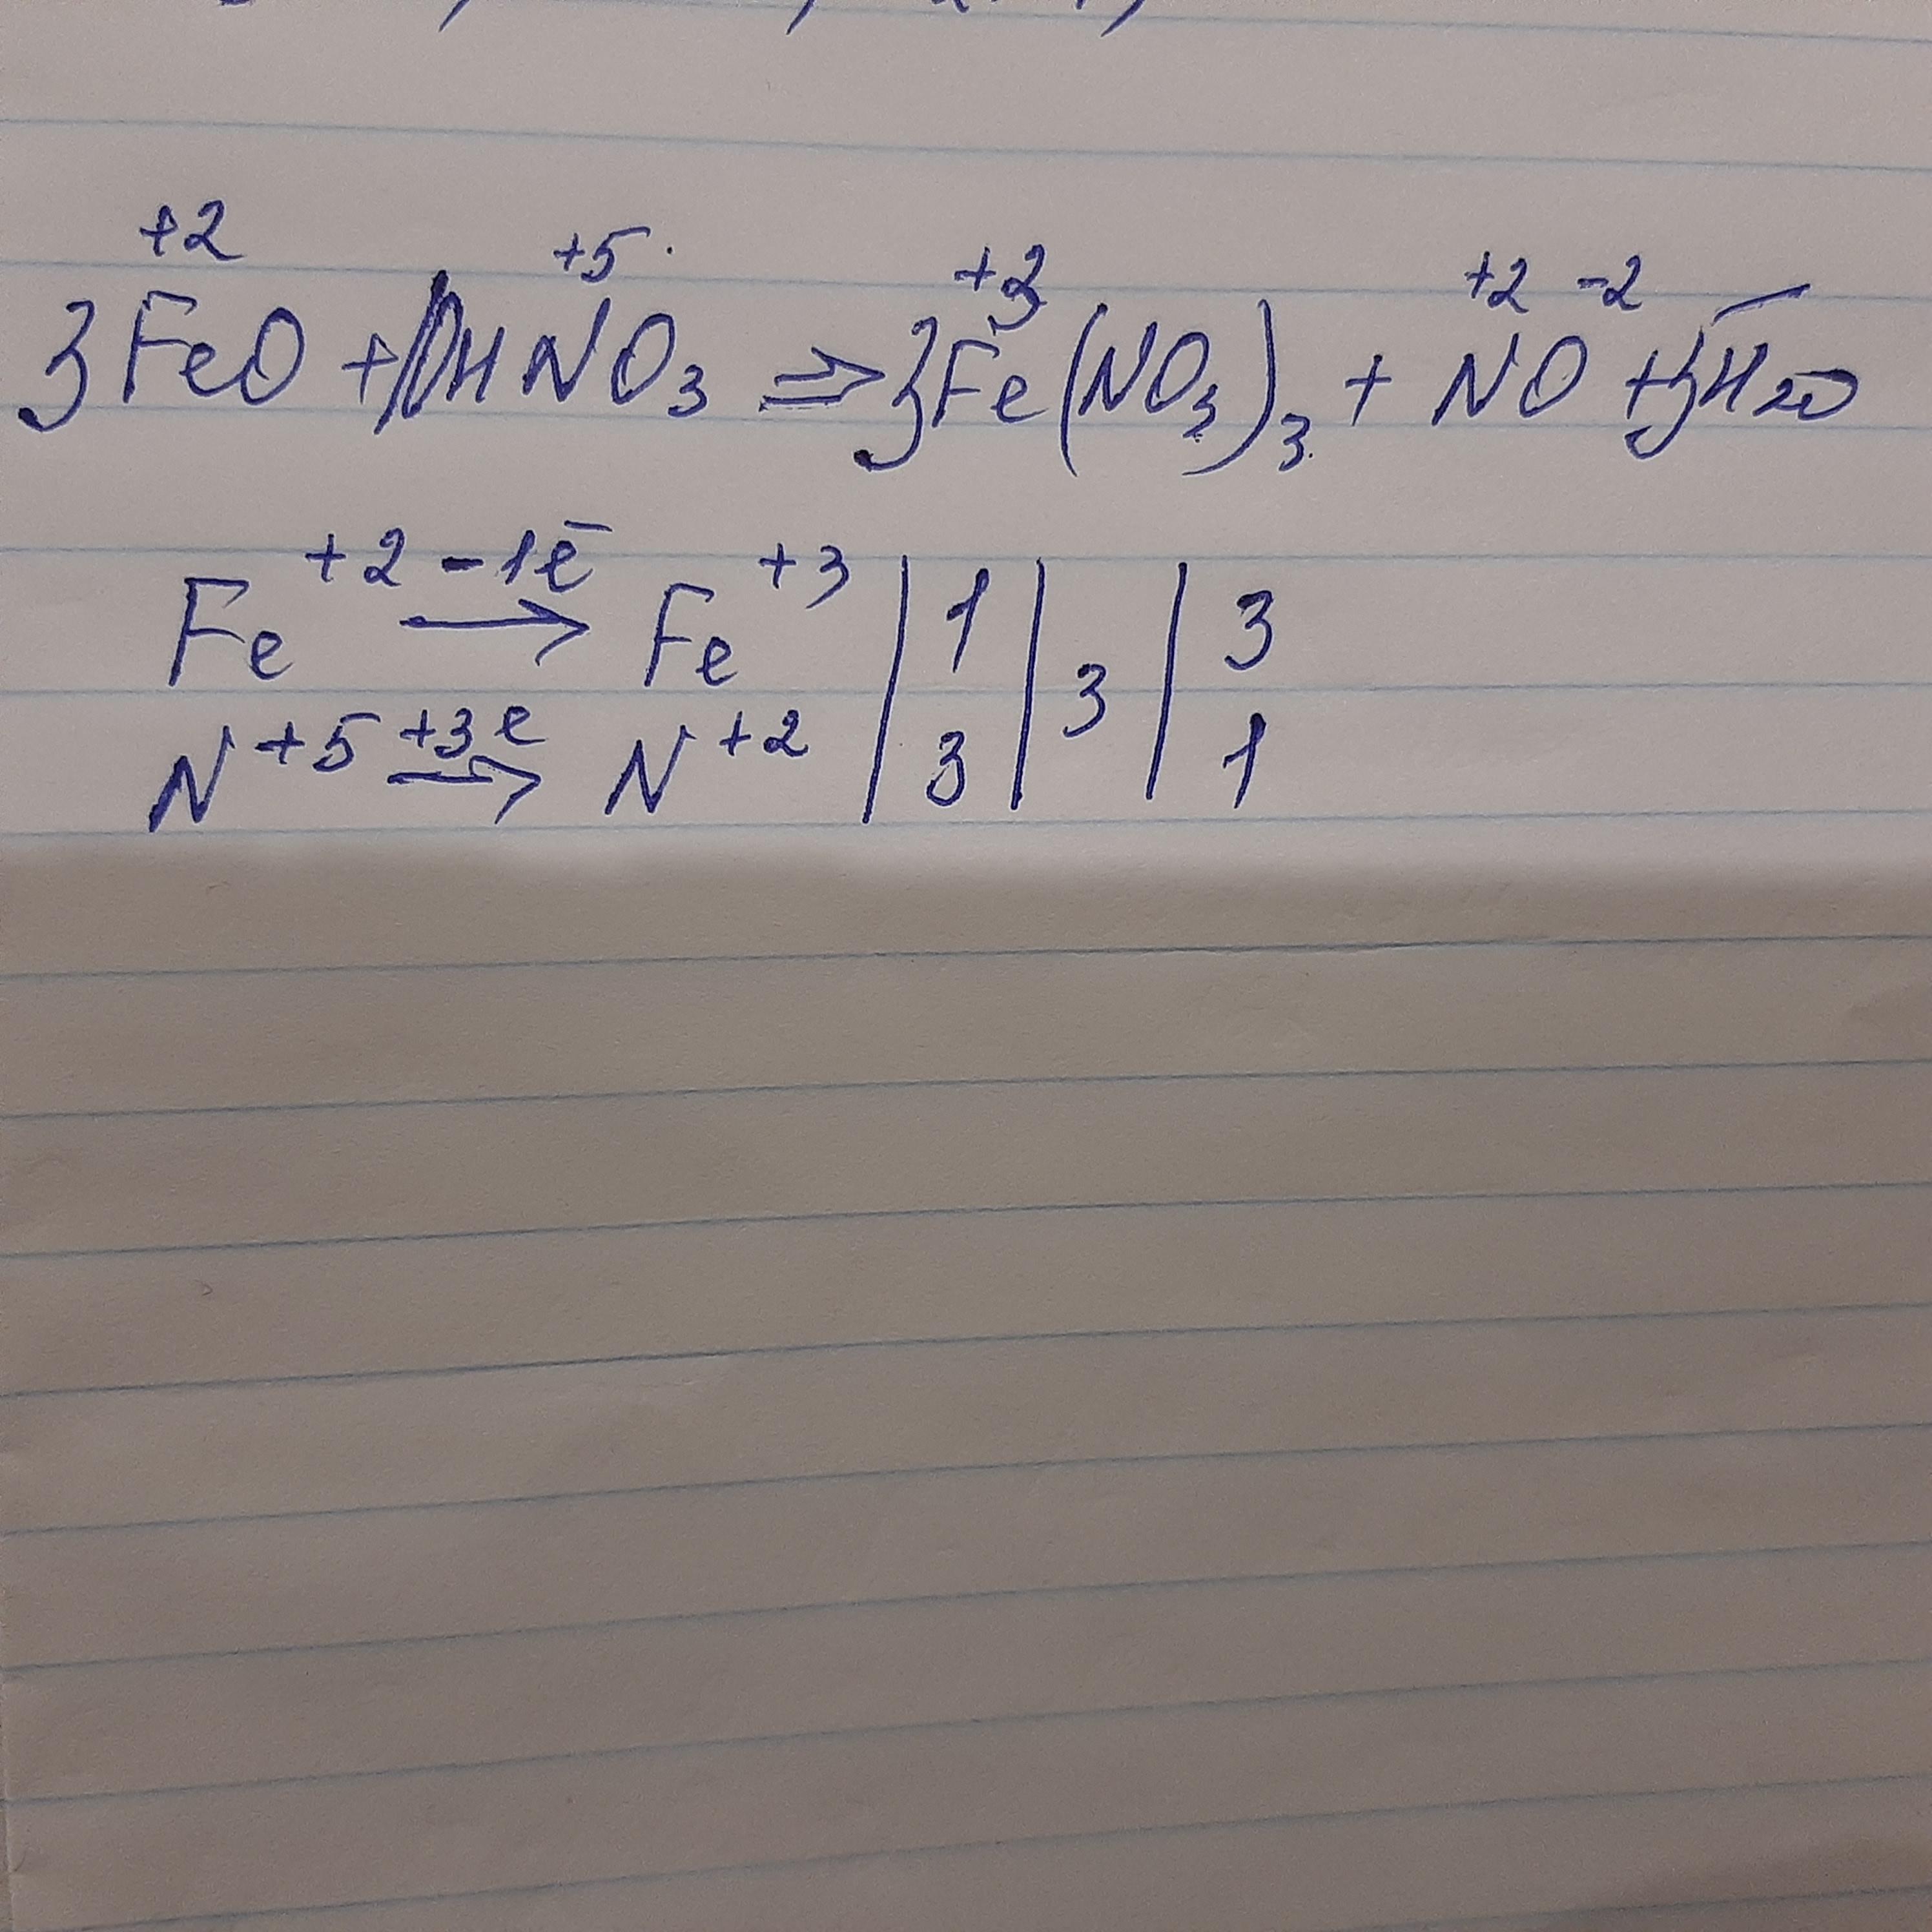 +2 +5 +3 +2 -2
3FeO + 10HNO₃ ⇒ 3Fe(NO₃)₃ + NO + 5H₂O
Fe⁺² -1ē → Fe⁺³ | 1 | 3 | 3
N⁺⁵ +3e → N⁺² | 3 | | 1